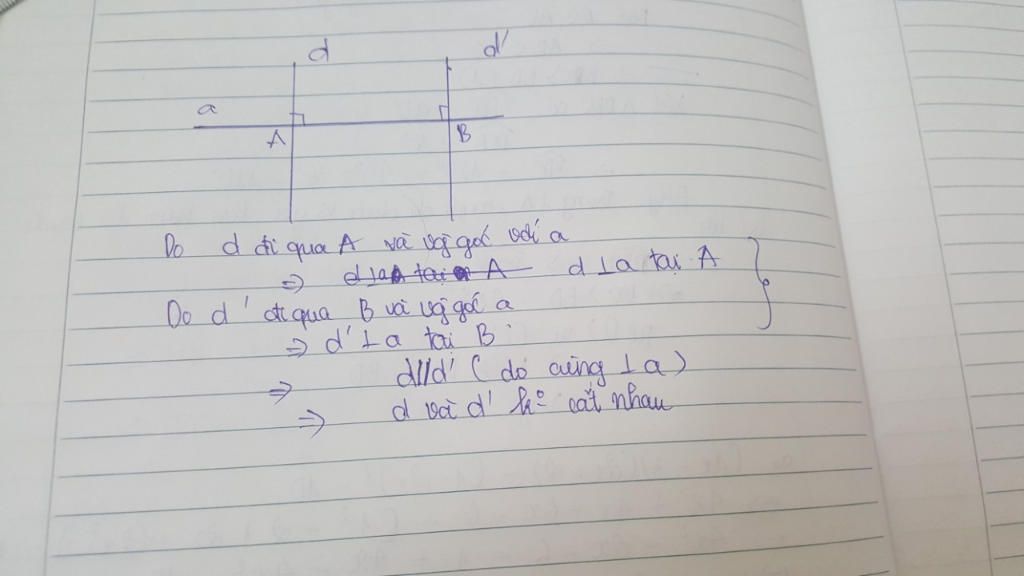 d d'
a
A B
Do d đi qua A và vg góc với a
⇒ d⊥a tại A
Do d' đi qua B và vg góc a
⇒ d' ⊥ a tại B
⇒ d//d' (do cùng ⊥ a)
⇒ d và d' k° cắt nhau